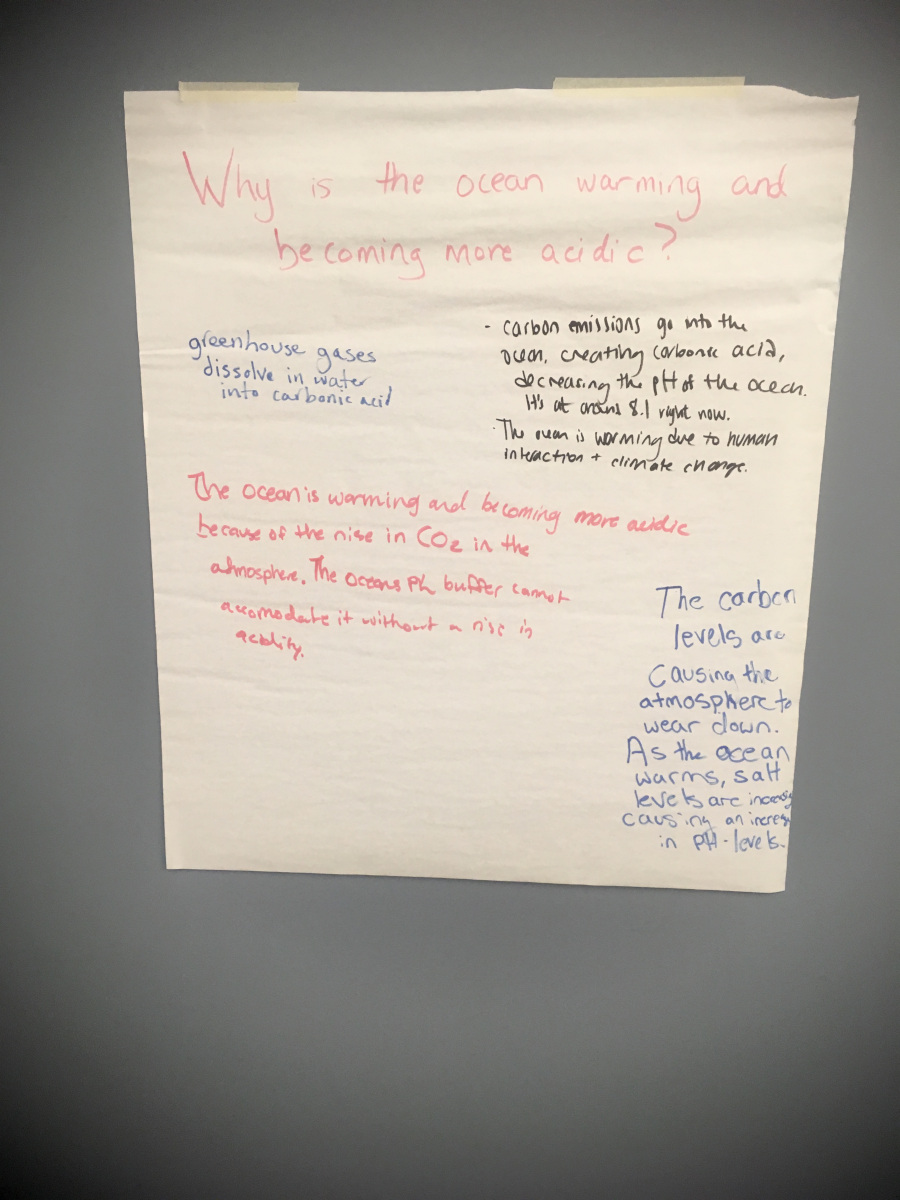 Why is the ocean warming and
becoming more acidic?
greenhouse gases
dissolve in water
into carbonic acid
- carbon emissions go into the
ocean, creating carbonic acid,
decreasing the pH of the ocean.
It's at around 8.1 right now.
- The ocean is warming due to human
interaction + climate change.
The ocean is warming and becoming more acidic
because of the rise in CO2 in the
atmosphere. The oceans Ph buffer cannot
accomodate it without a rise in
acidity.
The carbon
levels are
causing the
atmosphere to
wear down.
As the ocean
warms, salt
levels are
causing an
in PH-levels.